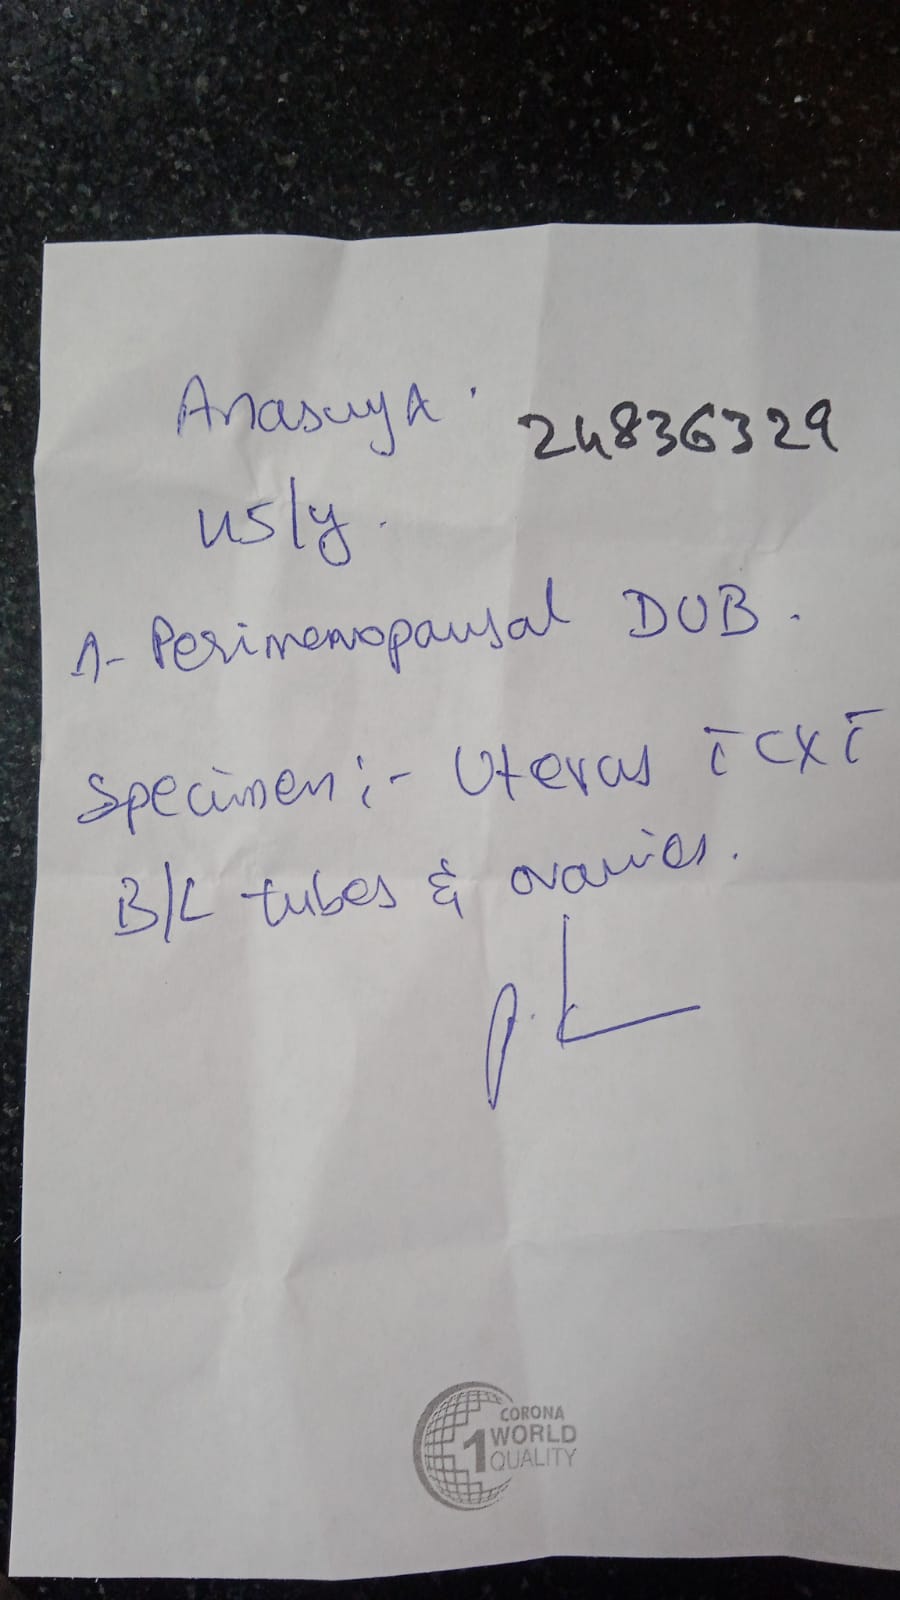 Anasuya. 24836329
45/y.
Δ- Perimenopausal DUB.
Specimen:- Uterus c̄ CX c̄
B/L tubes & ovaries.
CORONA
1 WORLD
QUALITY